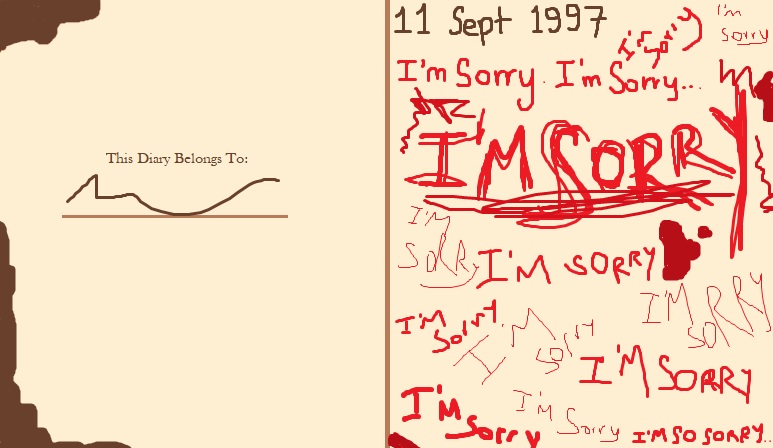 This Diary Belongs To:
11 Sept 1997
I'm Sorry
I'm
Sorry
I'm Sorry. I'm Sorry...
I'M SORRY
I'M
SORRY
I'M SORRY
I'M
SORRY
I'M
Sorry
I'M
Sorry
I'M SORRY
I'M
Sorry
I'M
Sorry
I'M SO SORRY..